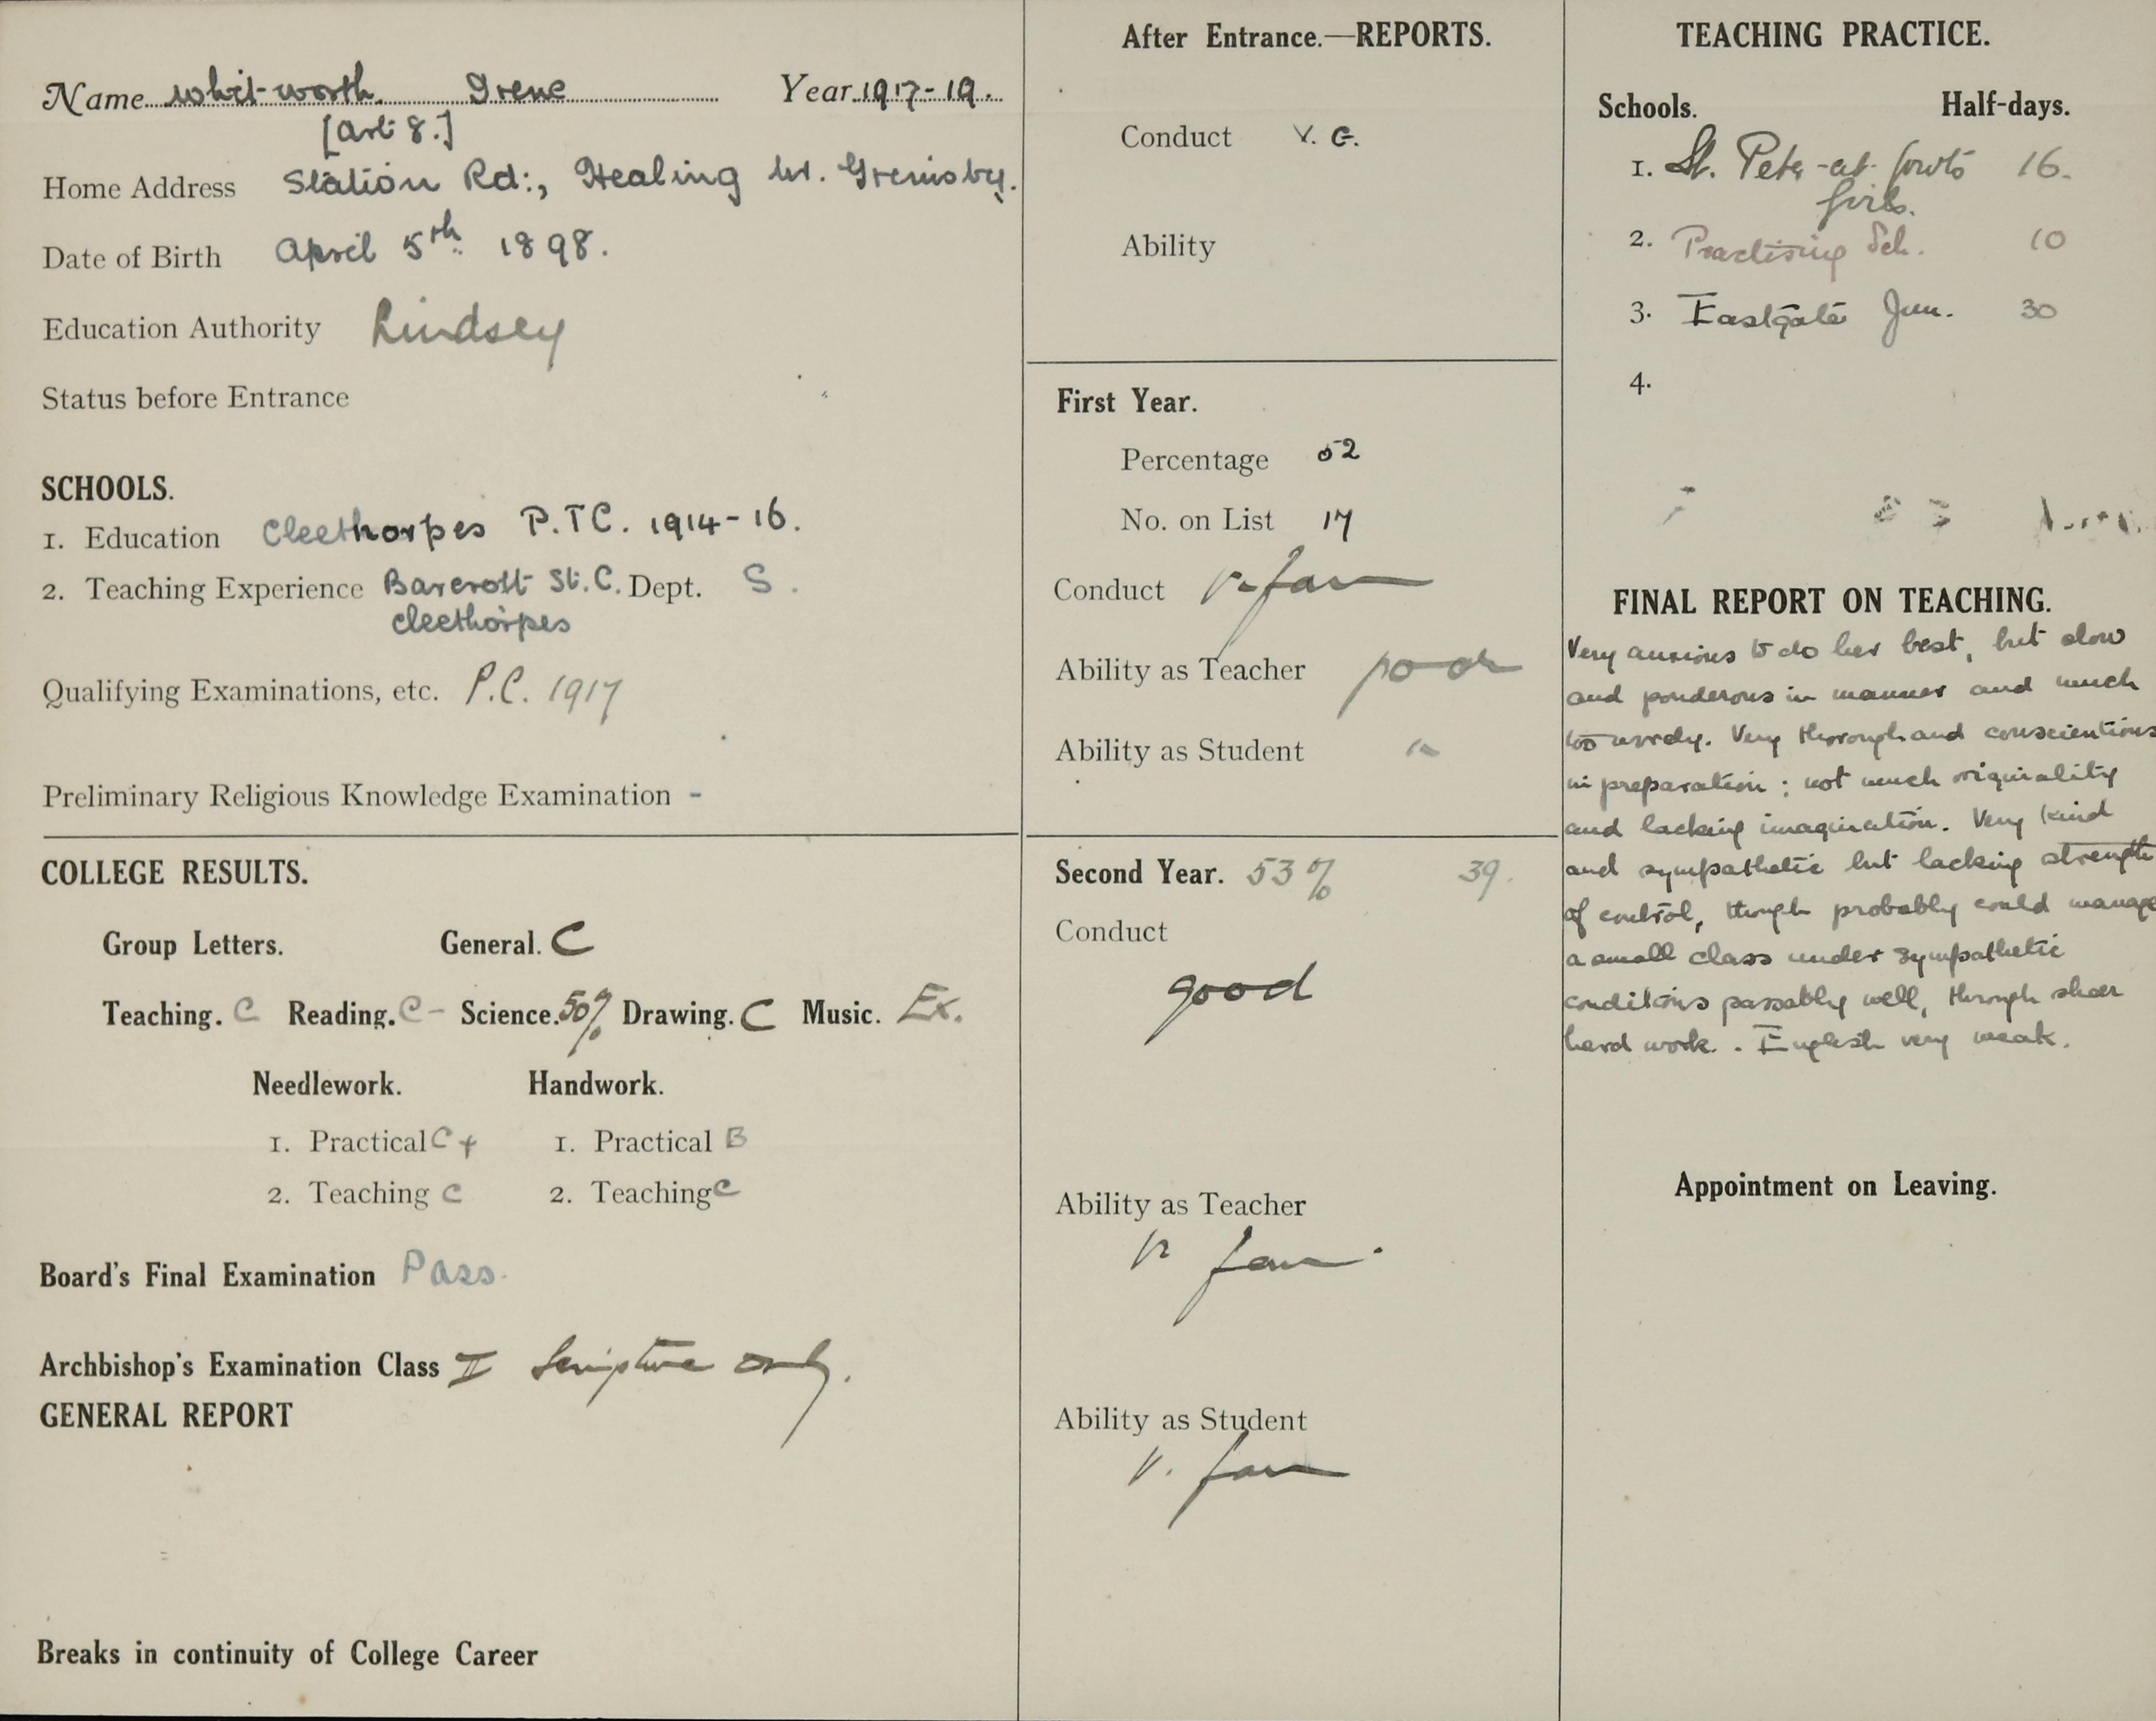 Name whit-worth. Irene Year 1917-19.
[Art: 8.]
Home Address Station Rd:, Healing nr. Grimsby.
Date of Birth April 5th. 1898.
Education Authority Lindsey
Status before Entrance
SCHOOLS.
1. Education Cleethorpes P.T.C. 1914-16.
2. Teaching Experience Barcroft St. C. Dept. S.
Cleethorpes
Qualifying Examinations, etc. P.C. 1917
Preliminary Religious Knowledge Examination -
COLLEGE RESULTS.
Group Letters. General. C
Teaching. C Reading. C- Science. 50% Drawing. C Music. Ex.
Needlework. Handwork.
1. Practical C+ 1. Practical B
2. Teaching C 2. Teaching C
Board's Final Examination Pass.
Archbishop's Examination Class II Scripture only.
GENERAL REPORT
Breaks in continuity of College Career
After Entrance.—REPORTS.
Conduct V. G.
Ability
First Year.
Percentage 52
No. on List 17
Conduct V. fair
Ability as Teacher poor
Ability as Student "
Second Year. 53% 39.
Conduct
good
Ability as Teacher
V. fair.
Ability as Student
V. fair
TEACHING PRACTICE.
Schools. Half-days.
1. St. Peter-at-Gowts 16.
Girls.
2. Practising Sch. 10
3. Eastgate Jun. 30
4.
FINAL REPORT ON TEACHING.
Very anxious to do her best, but slow
and ponderous in manner and much
too wordy. Very thorough and conscientious
in preparation; not much originality
and lacking imagination. Very kind
and sympathetic but lacking strength
of control, though probably could manage
a small class under sympathetic
conditions passably well, through sheer
hard work. . English very weak.
Appointment on Leaving.